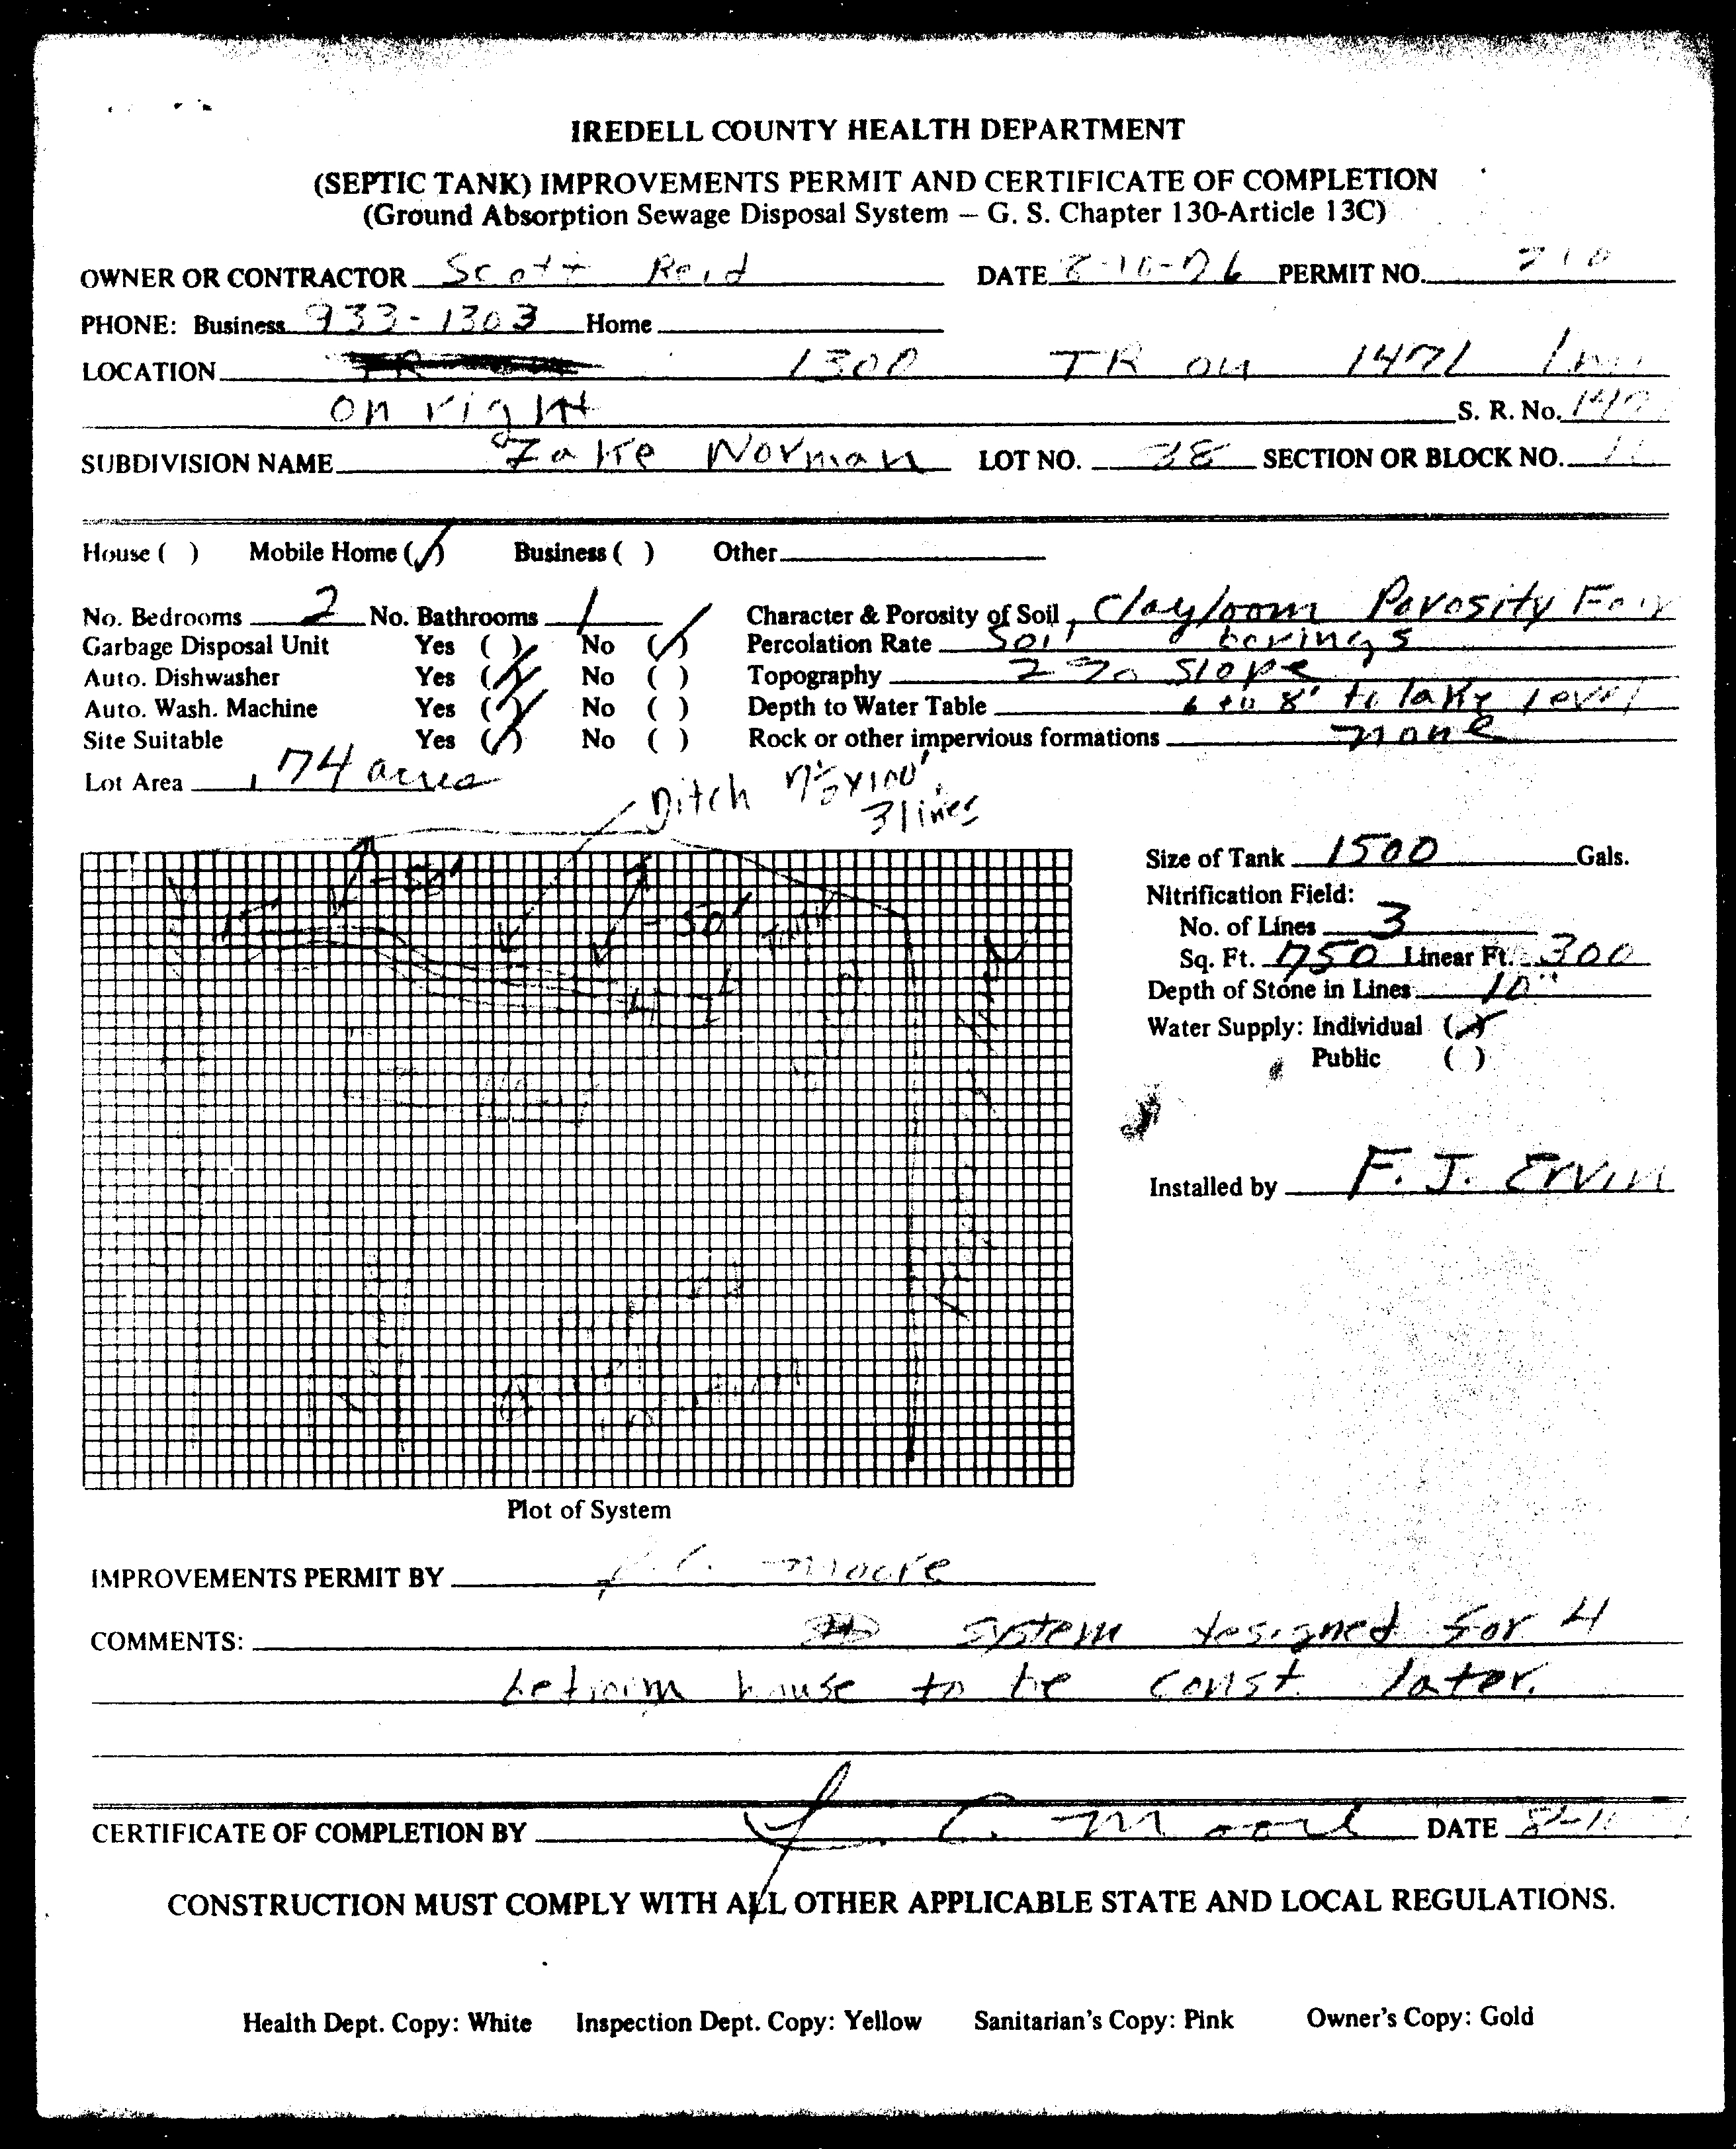 IREDELL COUNTY HEALTH DEPARTMENT
(SEPTIC TANK) IMPROVEMENTS PERMIT AND CERTIFICATE OF COMPLETION
(Ground Absorption Sewage Disposal System — G. S. Chapter 130-Article 13C)
OWNER OR CONTRACTOR Scott Reid DATE 8-10-76 PERMIT NO. 210
PHONE: Business 933-1303 Home
LOCATION 1300 TR on 1471 1 mi
on right S. R. No.
SUBDIVISION NAME Lake Norman LOT NO. 38 SECTION OR BLOCK NO.
House ( ) Mobile Home (✓) Business ( ) Other
No. Bedrooms 2 No. Bathrooms 1 Character & Porosity of Soil Clayloom Porosity Fair
Garbage Disposal Unit Yes ( ) No (✓) Percolation Rate Soil borings
Auto. Dishwasher Yes (✓) No ( ) Topography 2% slope
Auto. Wash. Machine Yes (✓) No ( ) Depth to Water Table 6 to 8' to lake level
Site Suitable Yes (✓) No ( ) Rock or other impervious formations none
Lot Area .74 acres
Ditch 2½x100'
3 lines
50'
50'
Size of Tank 1500 Gals.
Nitrification Field:
No. of Lines 3
Sq. Ft. 750 Linear Ft. 300
Depth of Stone in Lines 10"
Water Supply: Individual (✓)
Public ( )
Installed by F. J. Ervin
Plot of System
IMPROVEMENTS PERMIT BY C. Moore
COMMENTS: system designed for 4
bedroom house to be const. later.
CERTIFICATE OF COMPLETION BY C. Moore DATE
CONSTRUCTION MUST COMPLY WITH ALL OTHER APPLICABLE STATE AND LOCAL REGULATIONS.
Health Dept. Copy: White Inspection Dept. Copy: Yellow Sanitarian's Copy: Pink Owner's Copy: Gold